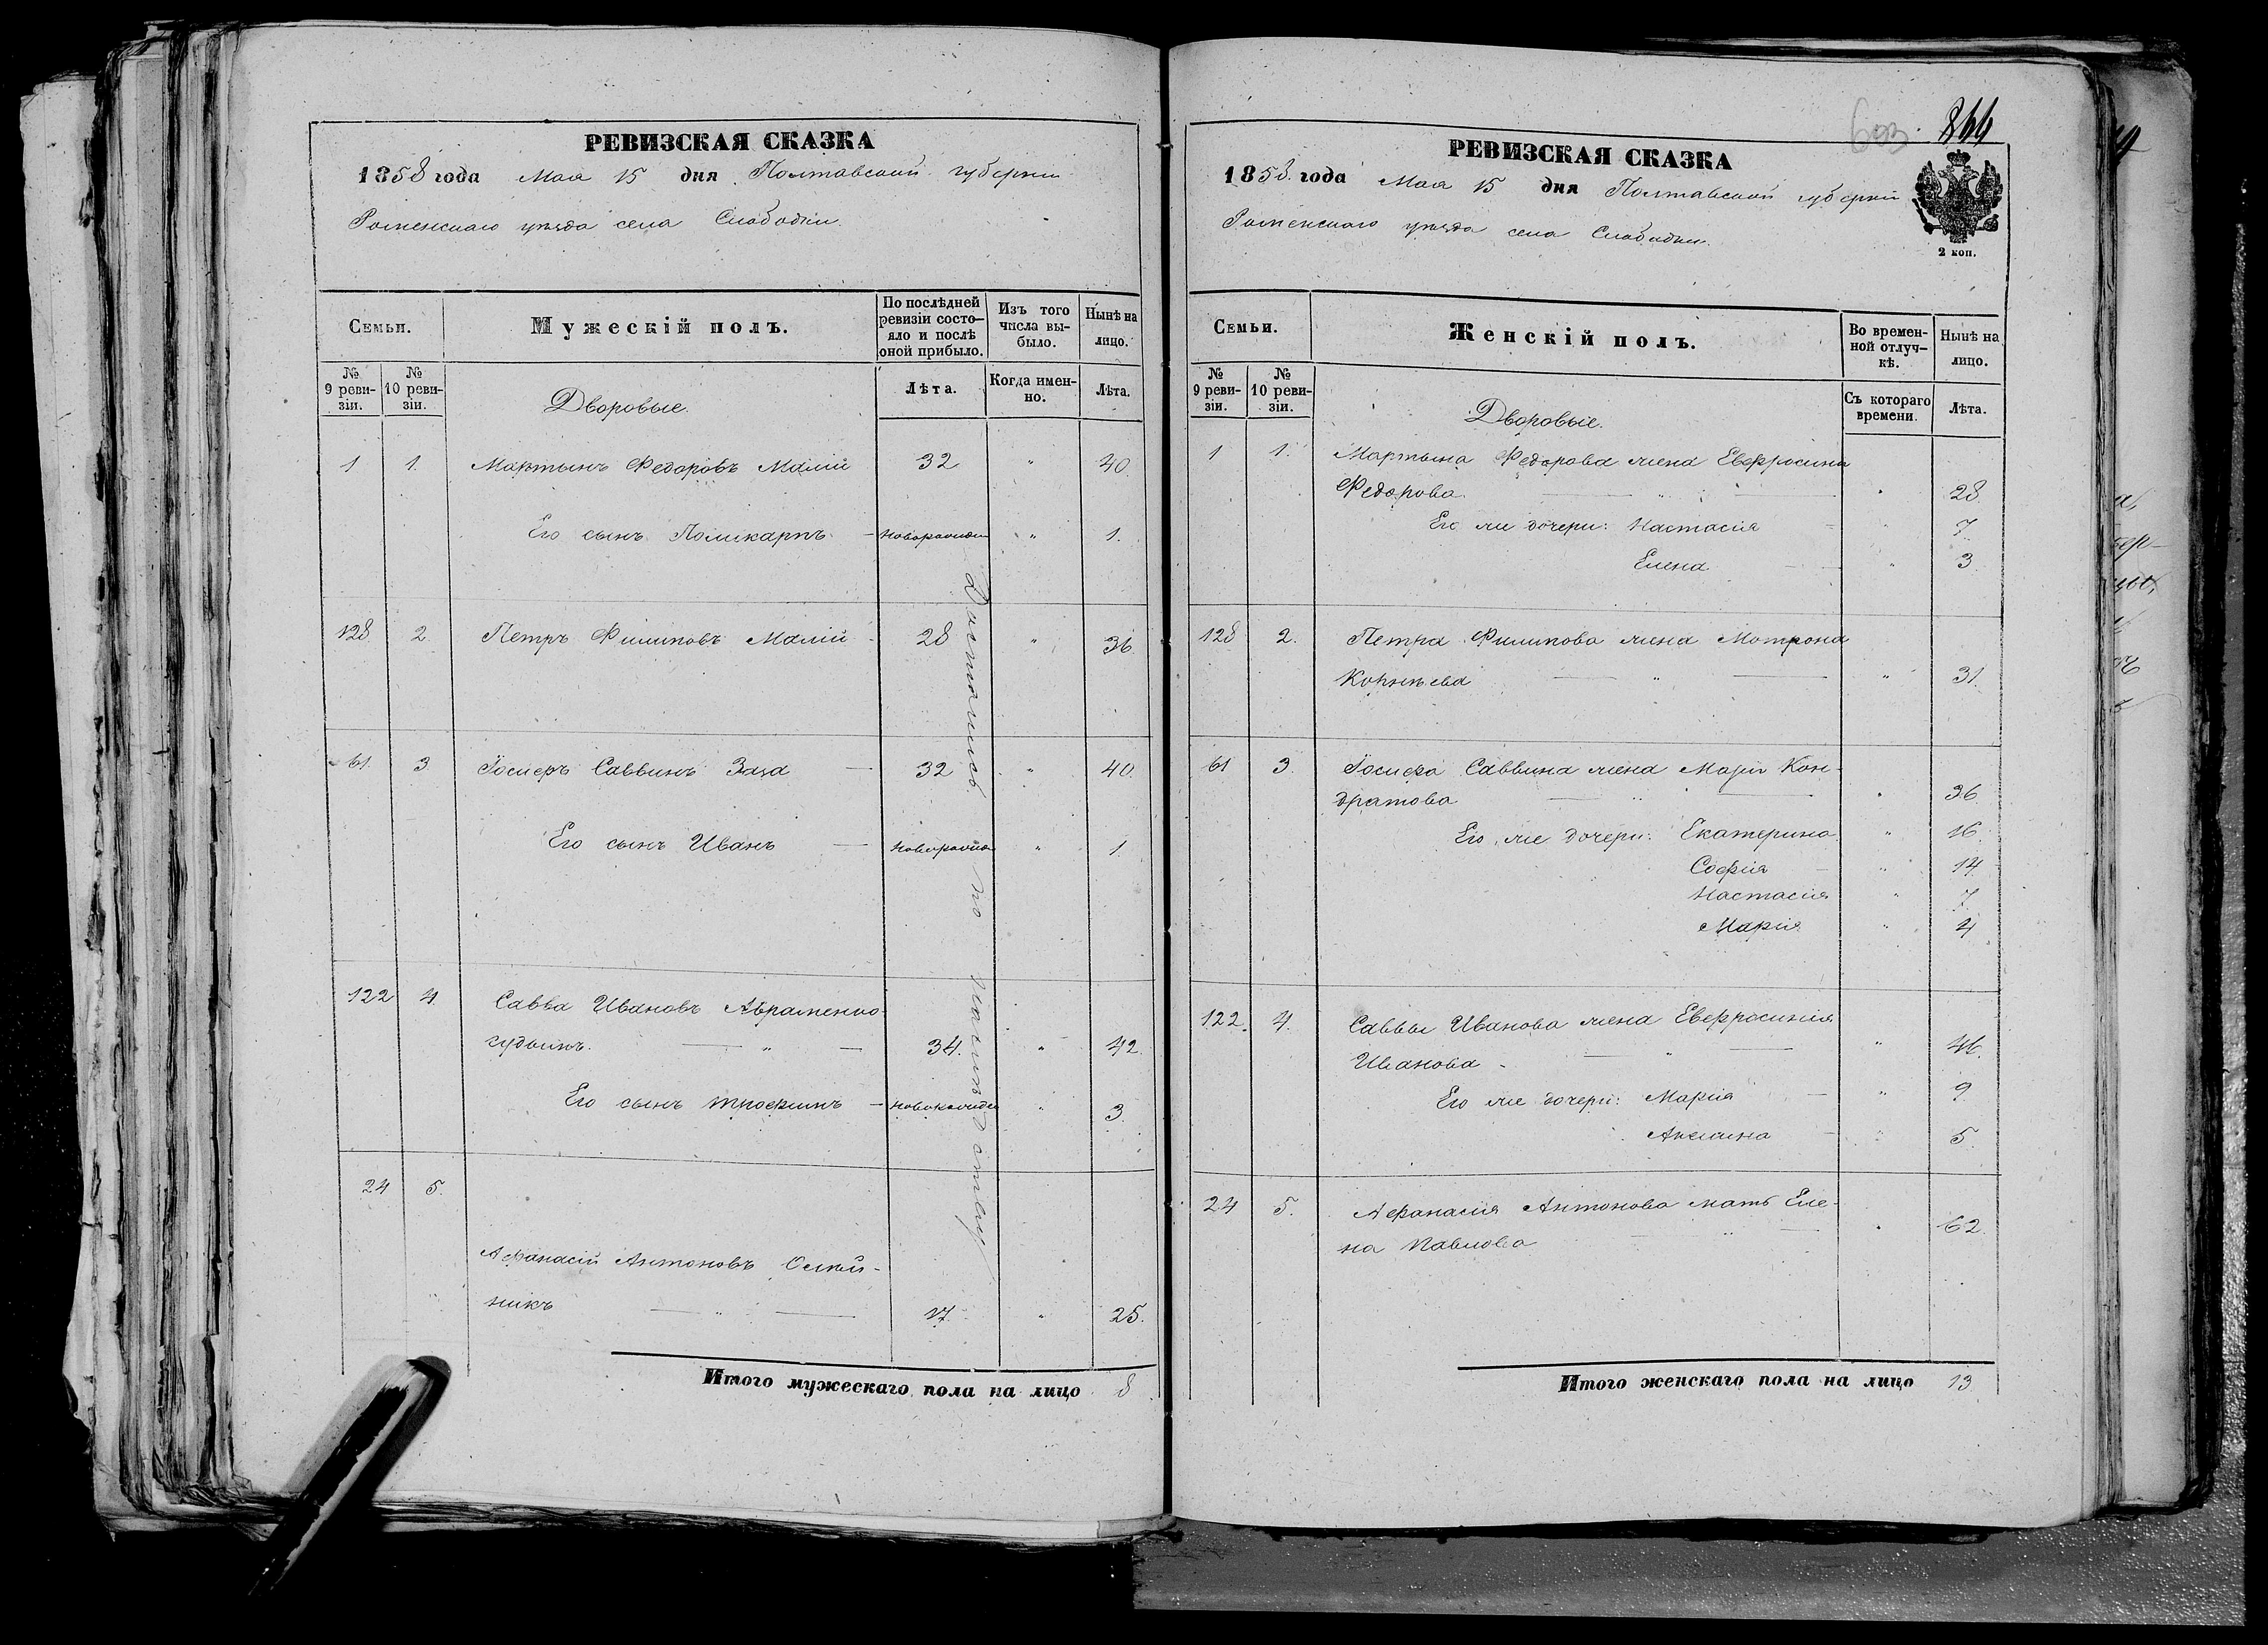 РЕВИЗСКАЯ СКАЗКА
1858 года Мая 15 дня Полтавской губернии
Роменскаго уѣзда села Слободки.
Семьи.
Мужескій полъ.
По послѣдней ревизіи состояло и послѣ оной прибыло.
Изъ того числа выбыло.
Нынѣ на лицо.
№ 9 ревизіи.
№ 10 ревизіи.
Дворовые.
Лѣта.
Когда именно.
Лѣта.
1 1. Мартынъ Федоровъ Малій 32 " 40.
Его сынъ Поликарпъ — новорожден " 1.
128 2. Петръ Филиповъ Малій 28 " 36.
61. 3. Іосифъ Саввинъ Заяа — 32 " 40.
Его сынъ Иванъ — новорожд " 1.
122 4. Савва Ивановъ Абраменко
34. " 42.
Его сынъ Трофимъ — новорожден " 3.
24 5.
Афанасій Антоновъ Олѣй-
никъ — " — 17. " 25.
Достались по наслѣдству
Итого мужескаго пола на лицо 8
603. 844
РЕВИЗСКАЯ СКАЗКА
1858. года Мая 15 дня Полтавской губерніи
Роменскаго уѣзда села Слободки.
2 коп.
Семьи.
Женскій полъ.
Во временной отлучкѣ.
Нынѣ на лицо.
№ 9 ревизіи.
№ 10 ревизіи.
Дворовые.
Съ котораго времени.
Лѣта.
1 1. Мартына Федорова жена Евфросинія
Федорова. — " — " 28
Его же дочери: Настасія — " 7
Елена — " 3
128 2. Петра Филипова жена Мотрона
Корнѣева — " — " 31.
61 3. Іосифа Саввина жена Марія Кон-
дратова — " — " 36
Его же дочери: Екатерина " 16.
Софія — " 14
Настасія " 7
Марія " 4
122. 4. Саввы Иванова жена Евфросинія
Иванова — " — " 41.
Его же дочери: Марія — " 9
Акилина — " 5.
24 5. Афанасія Антонова мать Еле-
на Павлова — " — " 62.
Итого женскаго пола на лицо 13